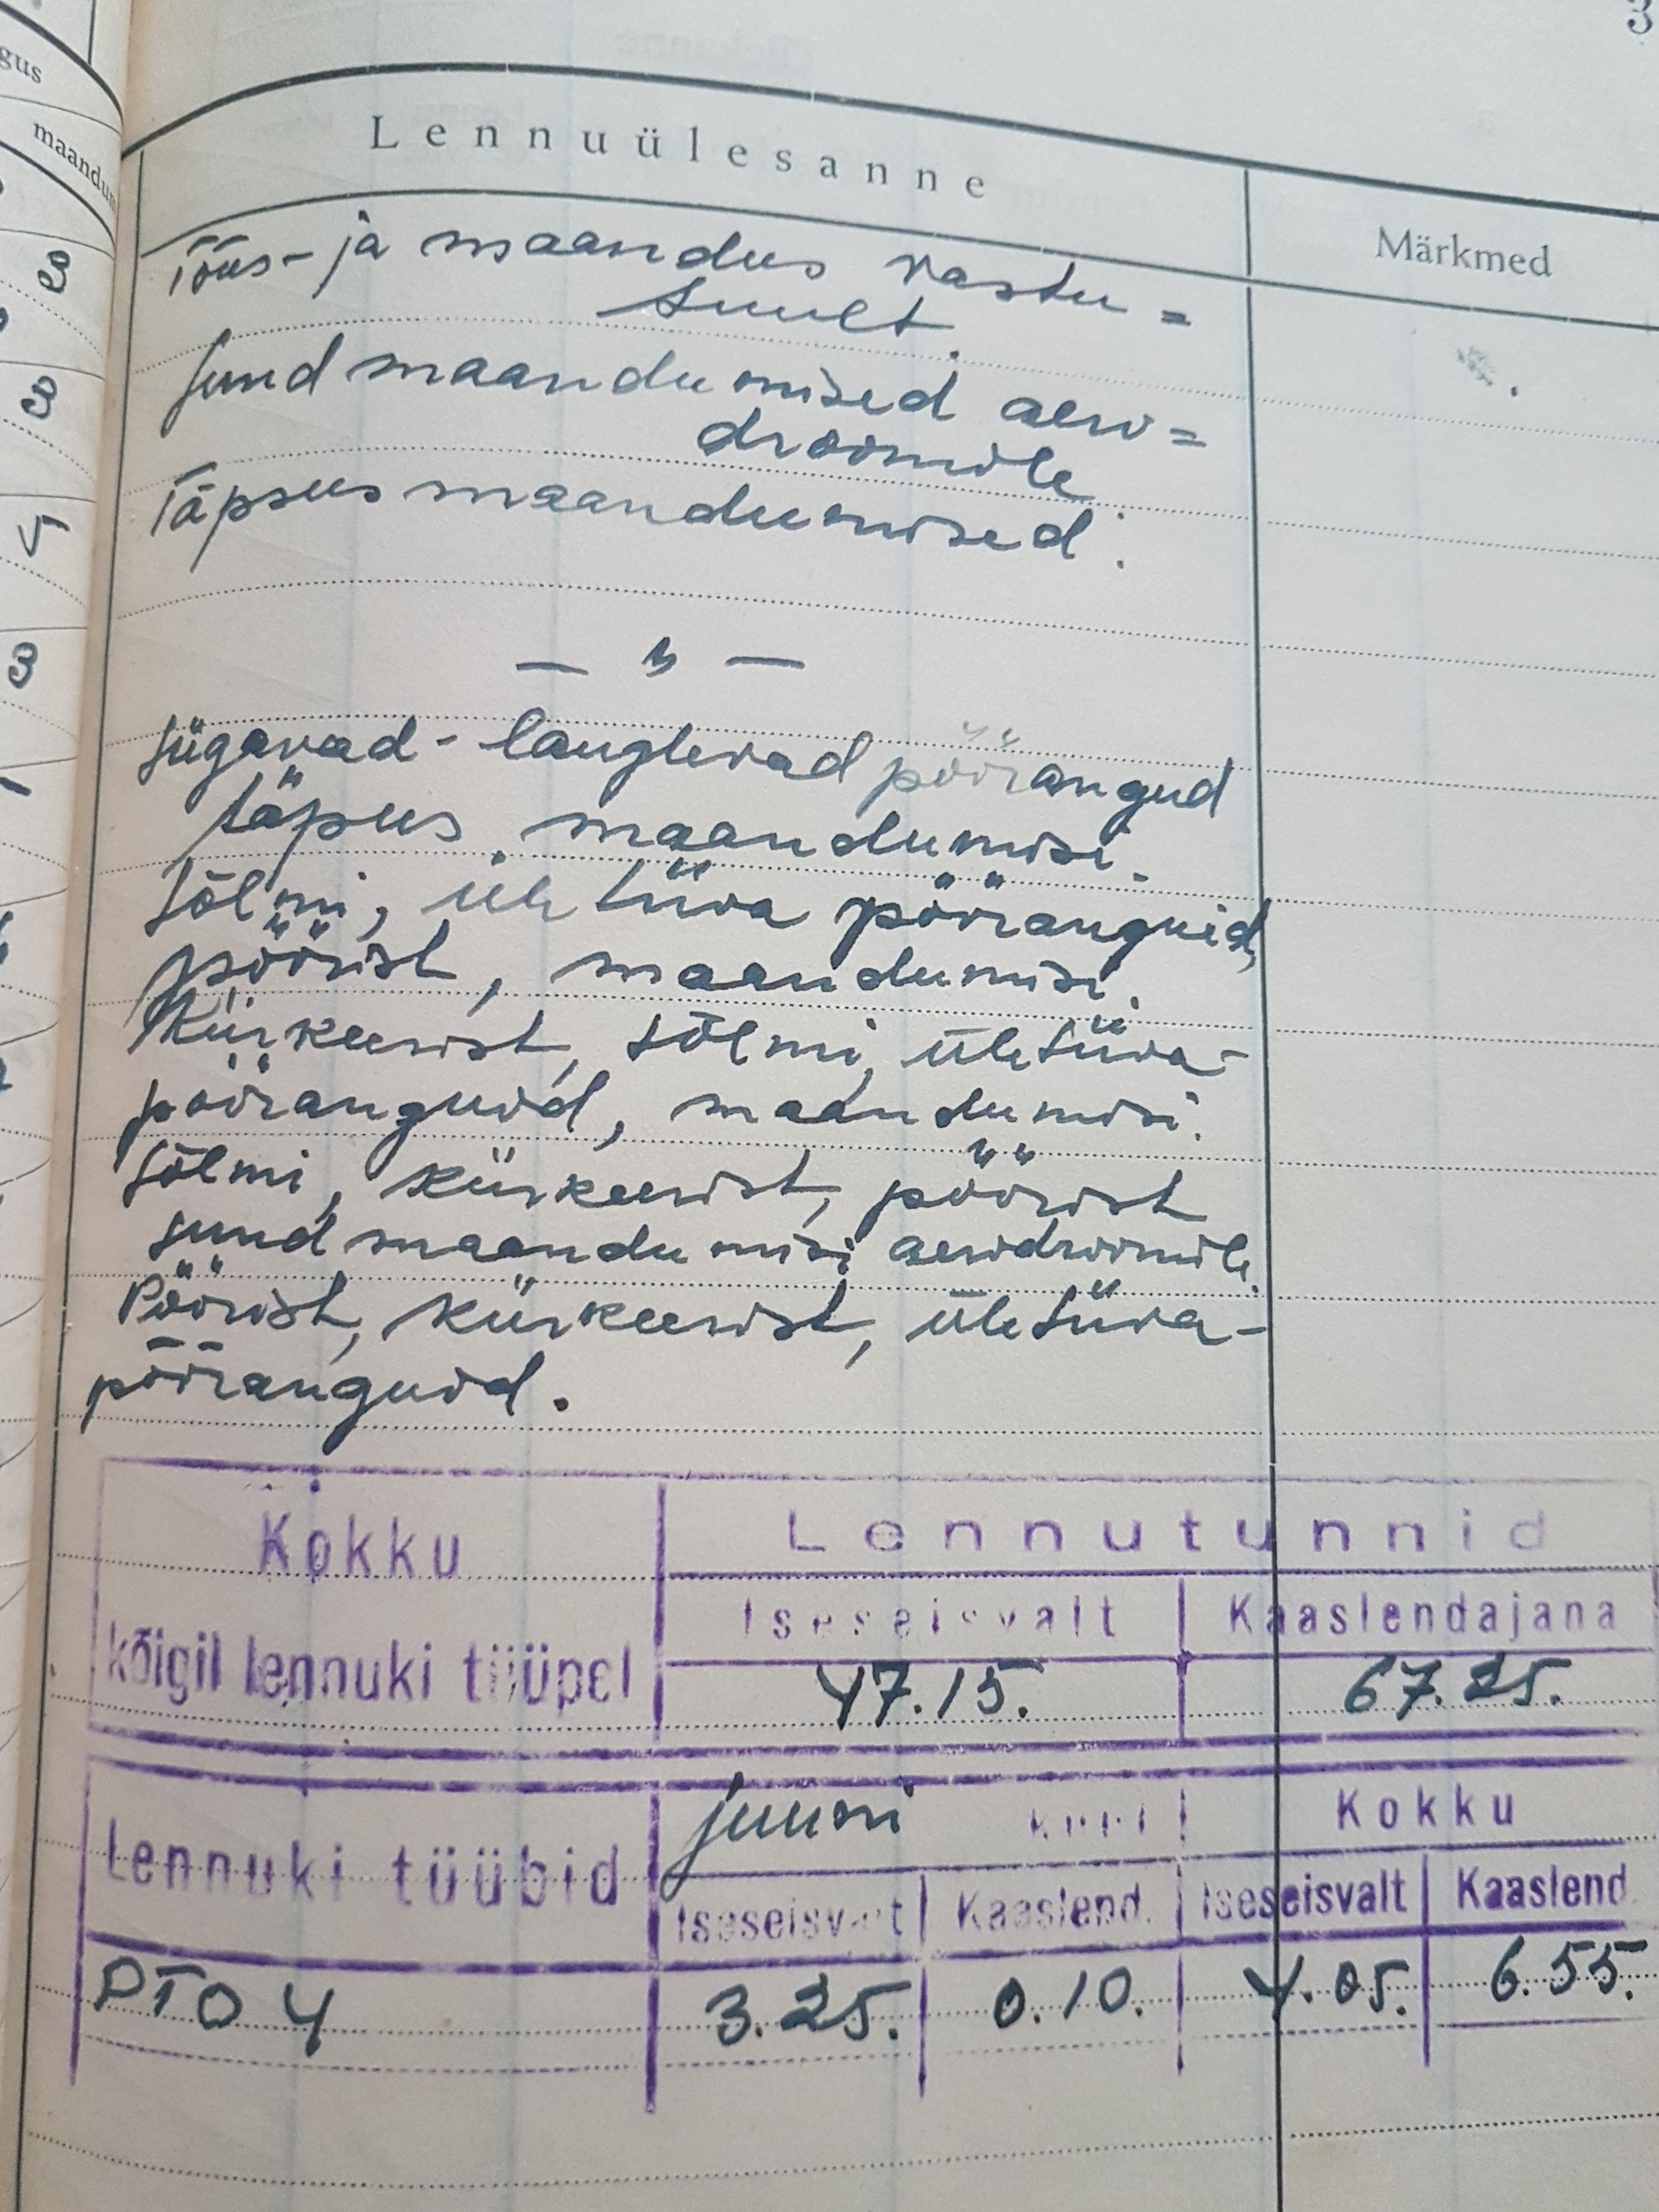 gus
maandu
3
3
5
3
Lennuülesanne
Märkmed
Tõus- ja maandus vastu=
tuult.
Sund maandumised aero=
droomile
Täpsus maandumised.
— " —
Sügavad - lauglevad pöörangud
täpsus. maandumisi.
Sõlmi, üle tiiva pööranguid,
pöörist, maandumisi.
Kiirkeerist, sõlmi,ületiiva-
pööranguid, maandumisi.
Sõlmi, kiirkeerist, pöörist
sund maandumisi aerodroomile.
Pöörist, kiirkeerist,ületiiva-
pööranguid.
Kokku
Lennutunnid
Iseseisvalt Kaaslendajana
kõigil lennuki tüüpel
47.15. 67.25.
juuni Kokku
Lennuki tüübid
Iseseisvalt Kaaslend. Iseseisvalt Kaaslend.
PTO 4 3.25. 0.10. 4.05. 6.55.